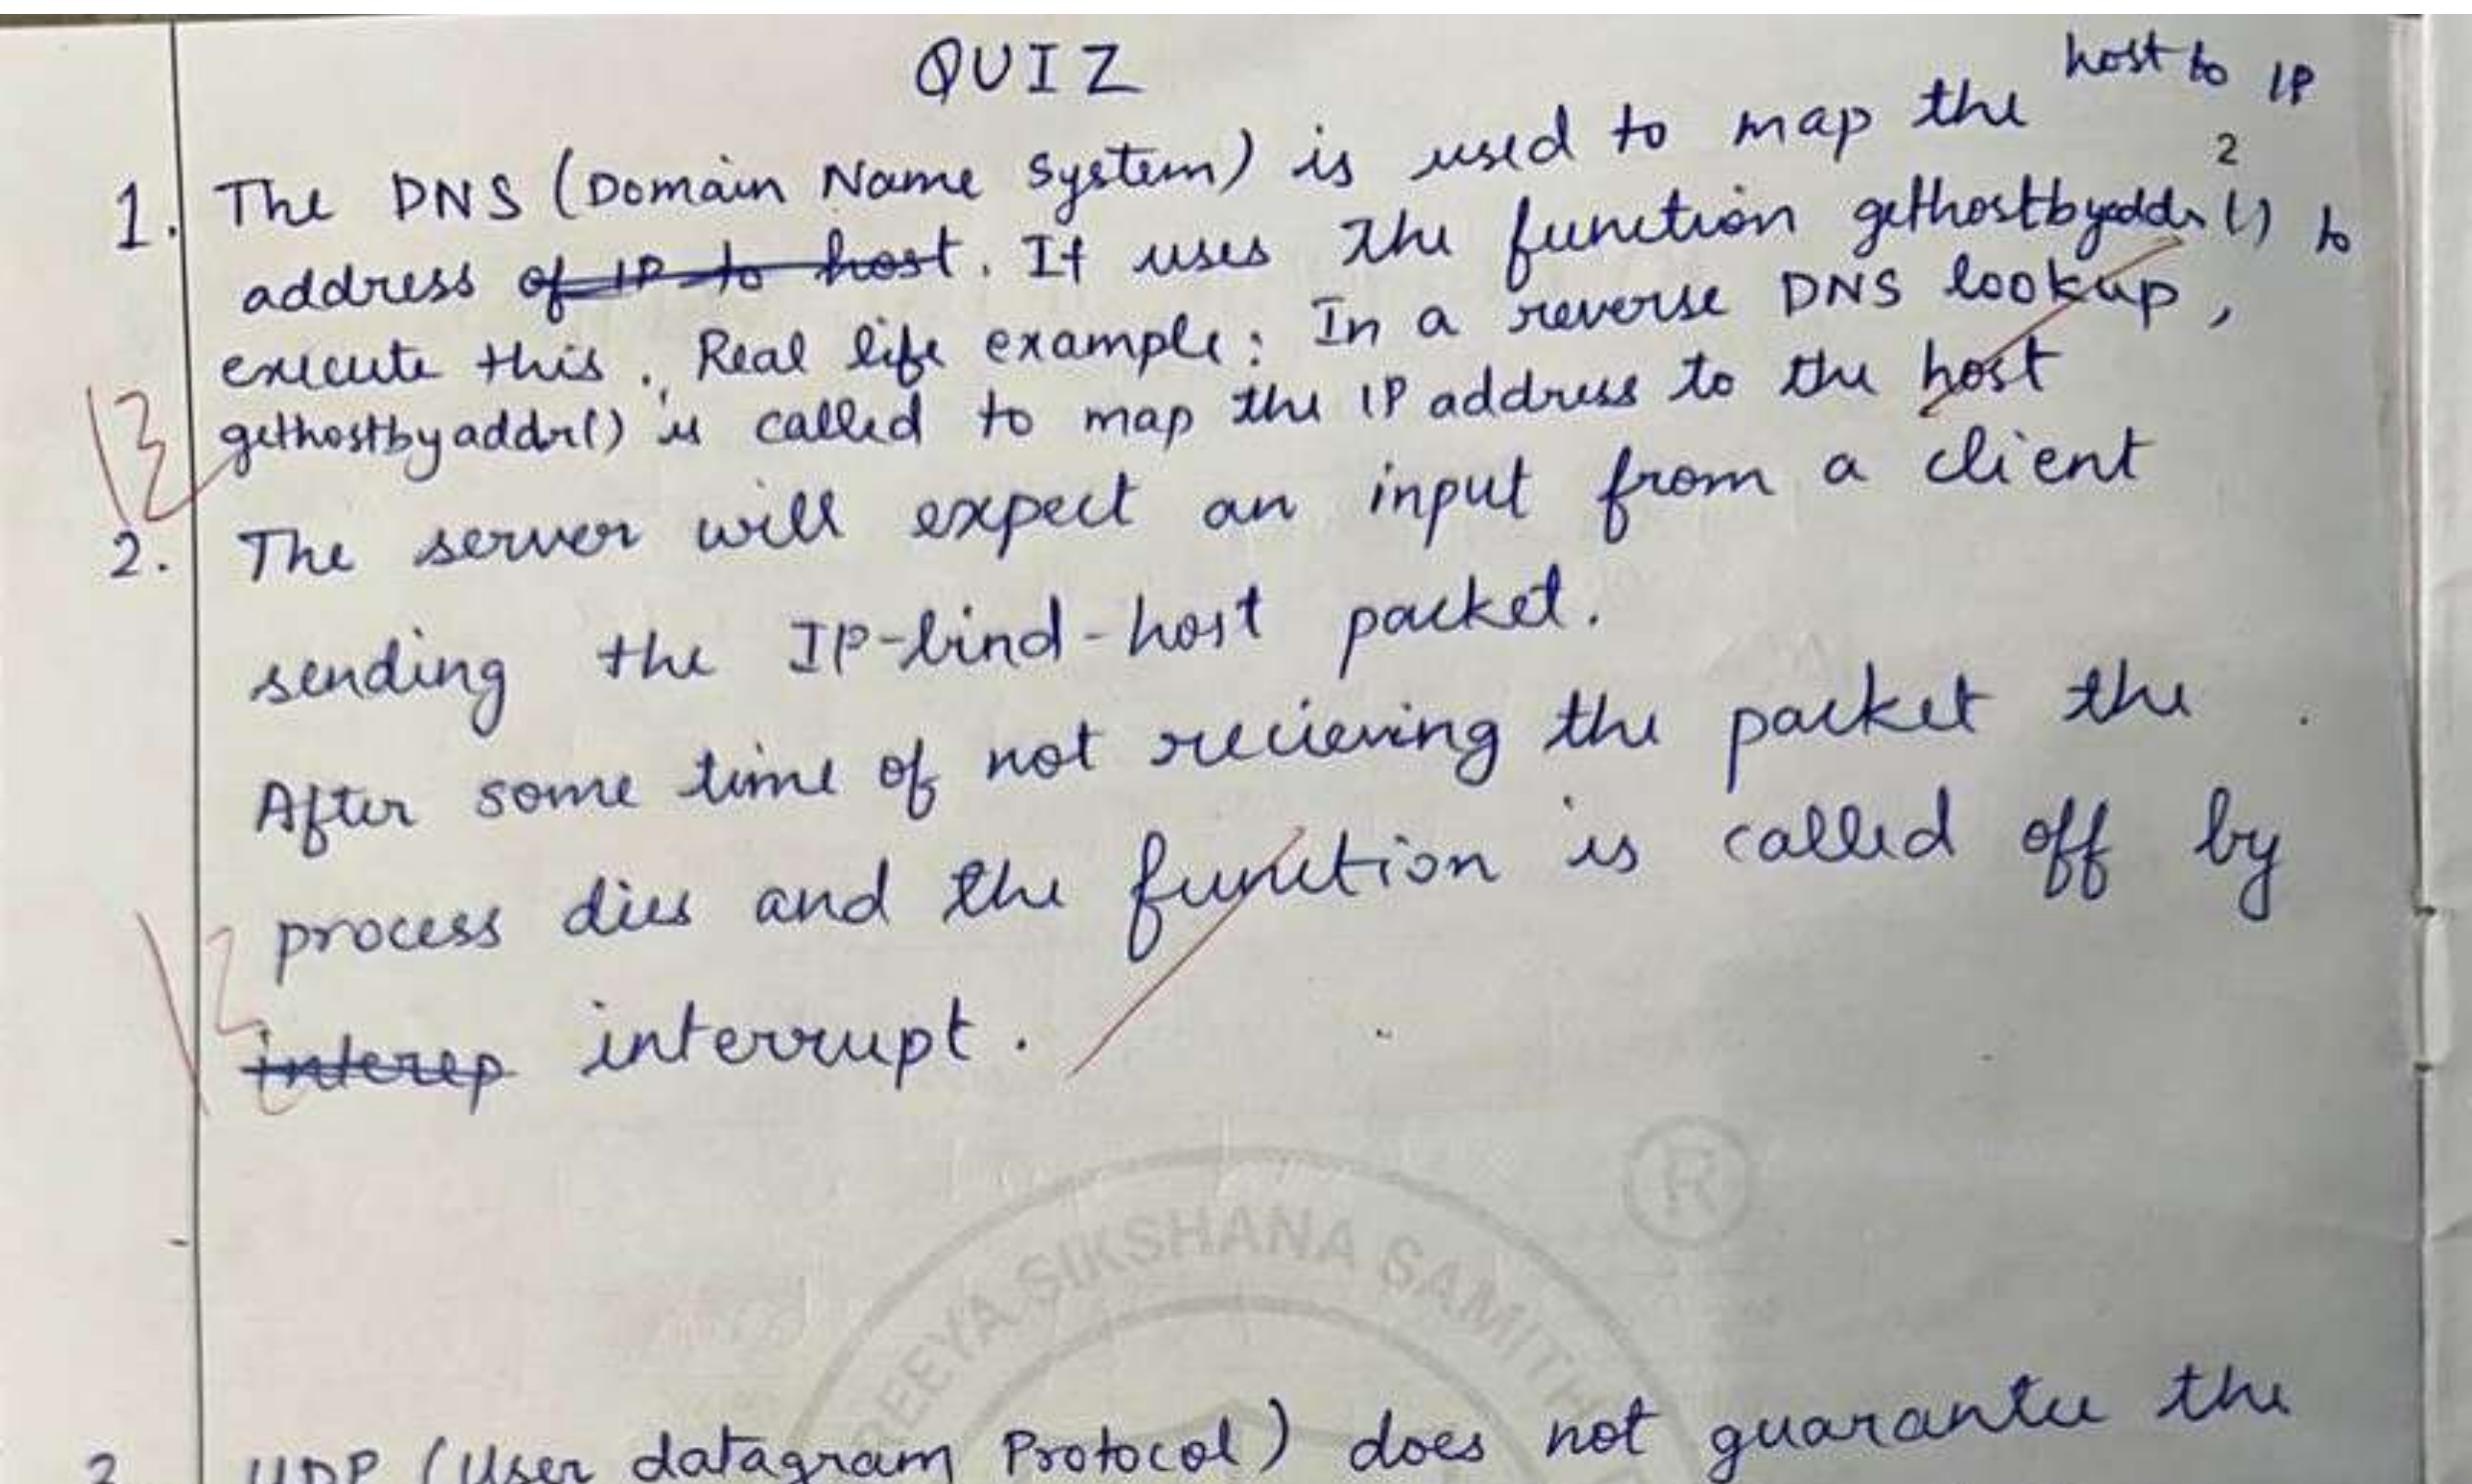 QUIZ
host to IP
1. The DNS (Domain Name System) is used to map the
2
address of IP to host. It uses the function gethostbyaddr() to
execute this. Real life example: In a reverse DNS lookup,
gethostbyaddr() is called to map the IP address to the host
2. The server will expect an input from a client
sending the IP-bind-host packet.
After some time of not recieving the packet the
process dies and the function is called off by
interep interrupt.
R
REEYA SIKSHANA SAMITH
3. UDP (User datagram Protocol) does not guarantee the